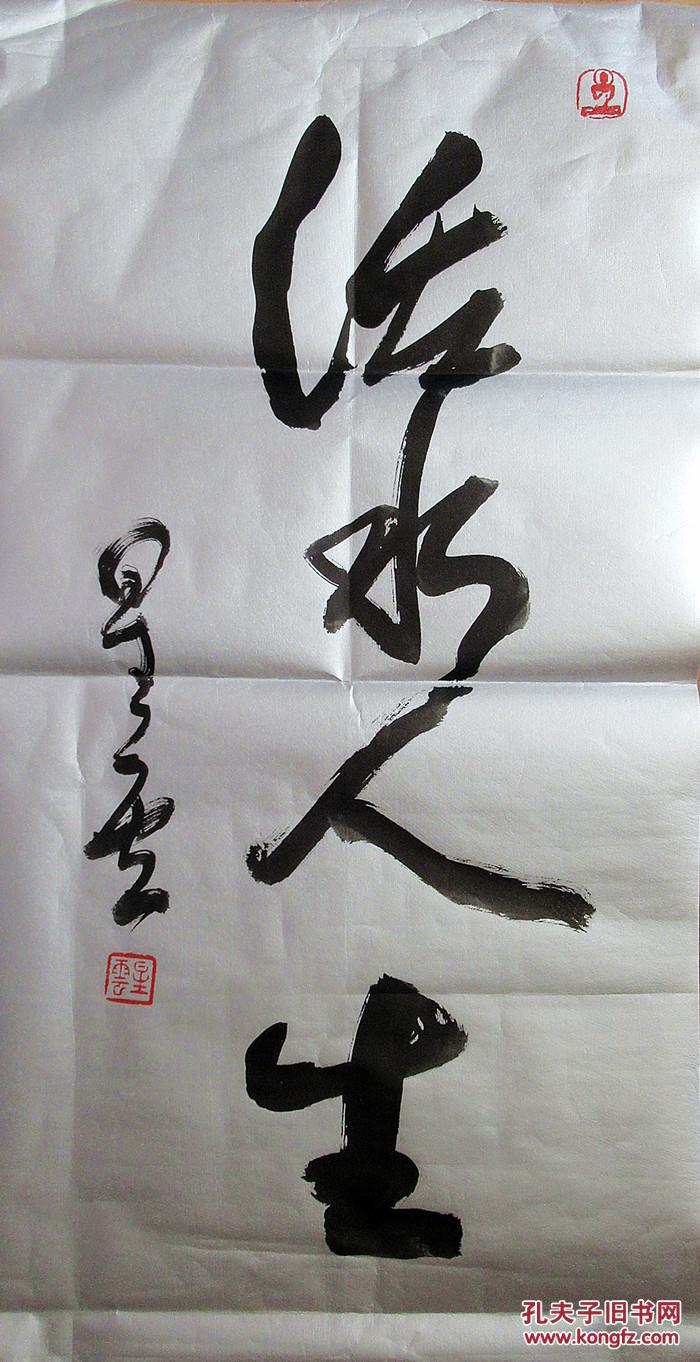 活水人生
星雲
星雲
孔夫子旧书网
www.kongfz.com